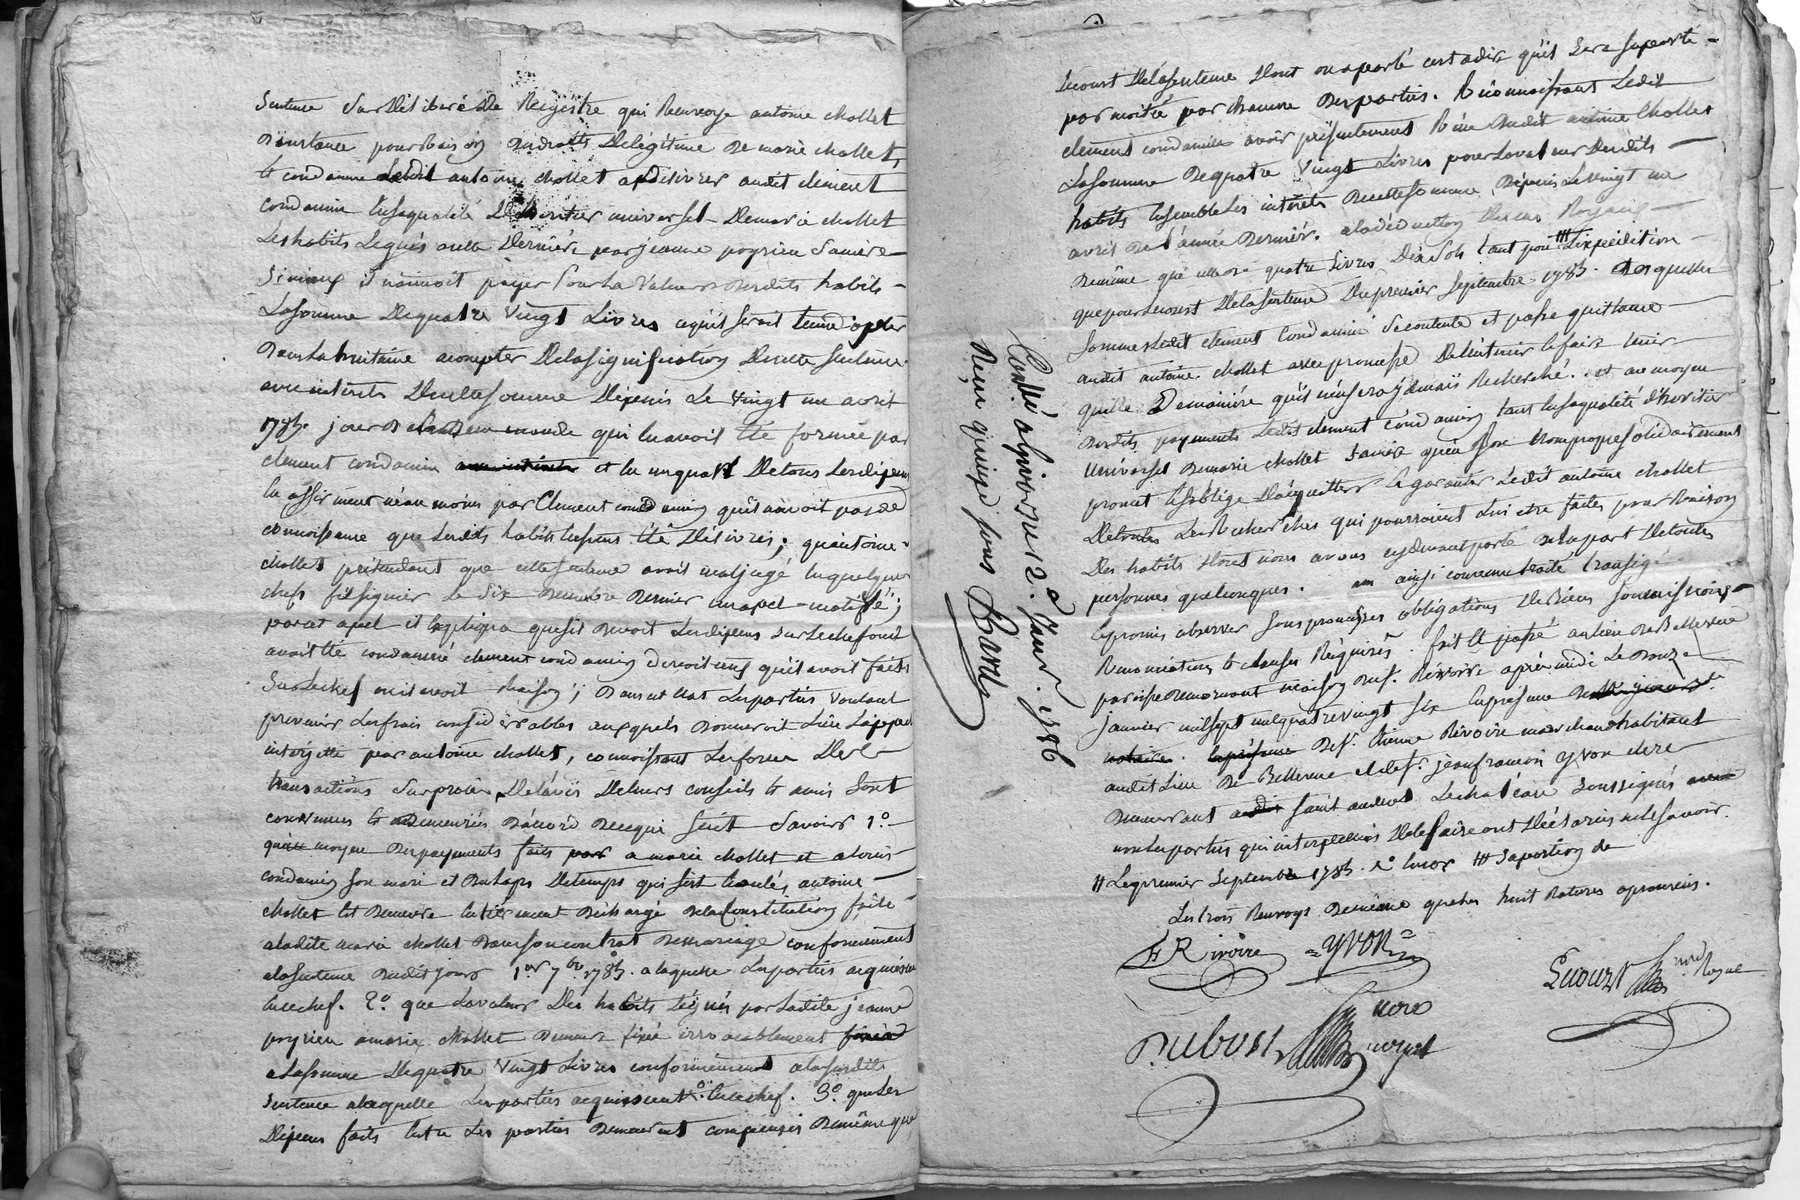 Sentence sur Délibéré De Registre qui Renvoye antoine chollet
D'instance pour Raison Dudroits De légitime De marie chollet,
& condamne Ledit antoine chollet a Délivrer audit clement
condamin En sa qualité D'héritier universel De marie chollet
Les habits Légués a cette Derniére par jeanne poyrieu Sa mere
Si mieux il n'aimoit payer Pour La Valeur Desdits habits
La Somme De quatre Vingt Livres ce qu'il seroit tenu d'opter
Dans La huitaine a compter De la signification De cette Sentence
avec intérêts De cette Somme Depuis Le vingt un avril
1785. jour De la Demande qui luy avoit été formée par
clement condamin et En un quart De tous Les dépens
En affirmant néanmoins par Clement condamin qu'il n'avoit pas de
connoissance que Lesdits habits Eussent été Délivrés; qu'antoine
chollet prétendant que cette Sentence avoit mal jugé En quelques
chefs fit signifier Le Six Dernier un apel motifié;
par cet apel il Expliqua que s'il Devoit Les dépens Sur Le chef ou il
avoit été condamné clement condamin devoit ceux qu'il avoit faits
Sur Le chef ou il avoit Raison; Dans cet Etat Les parties voulant
prevenir Les frais considérables auxquels Donneroit Lieu L'appel
interjetté par antoine chollet, connoissant La force Des
transactions Sur procès, De l'avis De Leurs conseils & amis Sont
convenues & Demeurées D'accord De ce qui Suit Savoir 1°.
qu'au moyen Des payements faits a marie chollet et a Louis
condamin Son mari et Du Laps De temps qui s'est Ecoulé, antoine
chollet Est Demeuré Entiérement Déchargé De La Constitution faite
a Ladite marie chollet Dans Son contrat De mariage conformement
a la Sentence Dudit jour 1er 7bre 1785. a laquelle Les parties acquiescent
En ce chef. 2°. que La valeur Des habits Légués par Ladite jeanne
poyrieu a marie chollet Demeure fixée irrévocablement
a La Somme De quatre Vingt Livres conformément a la Susdite
Sentence a laquelle Les parties acquiescent En ce chef. 3°. que Les
Dépens faits Entre Les parties Demeurent compensés De même que
Lecourt De la Sentence Dont on a parlé c'est a dire qu'il Sera Suporté
par moitié par chacune Des parties. Reconnoissant Ledit
clement condamin avoir présentement Reçu Dudit antoine chollet
La Somme De quatre Vingt Livres pour La valeur Desdits
habits Ensemble Les intérêts De cette Somme Depuis Le vingt un
avril De l'année Derniére, a la déduction Du cas Royaux
De même que celle de quatre Livres Dix Sols tant pour L'expédition
que pour Lecourt De la Sentence Du premier Septembre 1785. Desquelles
Sommes Ledit clement Condamin Se contente et passe quittance
audit antoine chollet avec promesse De L'en tenir & faire tenir
quitte De maniére qu'il n'en sera jamais Recherché. et au moyen
Desdits payements Ledit clement condamin tant En sa qualité d'héritier
Universel De marie chollet Sa mére qu'en Son Nom propre Solidairement
promet & s'oblige D'acquitter & garantir Ledit antoine chollet
De toutes Les Recherches qui pourroient Lui etre faites pour Raison
Des habits Dont nous avons cydevant parlé De la part De toutes
personnes quelconques. ainsi convenu traité transigé
& promis observer Sous promesses obligations De Biens Soumissions
Renonciations & clauses Requises. fait & passé au Lieu De Bellevue
paroisse De mornant maison Du Sr. Rivoire aprés midi Le Douze
janvier mil sept cent quatre vingt Six En présence
De Sr. Etienne Rivoire marchand habitant
audit Lieu De Bellevue et de Sr. jean françois yvon clerc
Demeurant a Saint andeol Le chateau Soussignés
non Les parties qui interpellées De le faire ont Déclaré ne le Savoir.
# Le premier Septembre 1785. # Sa portion de
Les trois Renvoys De même que Les huit Ratures aprouvées.
E Rivoire = yvon =
Lecourt
Dubost
Contlé a Givors le 12. Janr. 1786
Reçu quinze sous